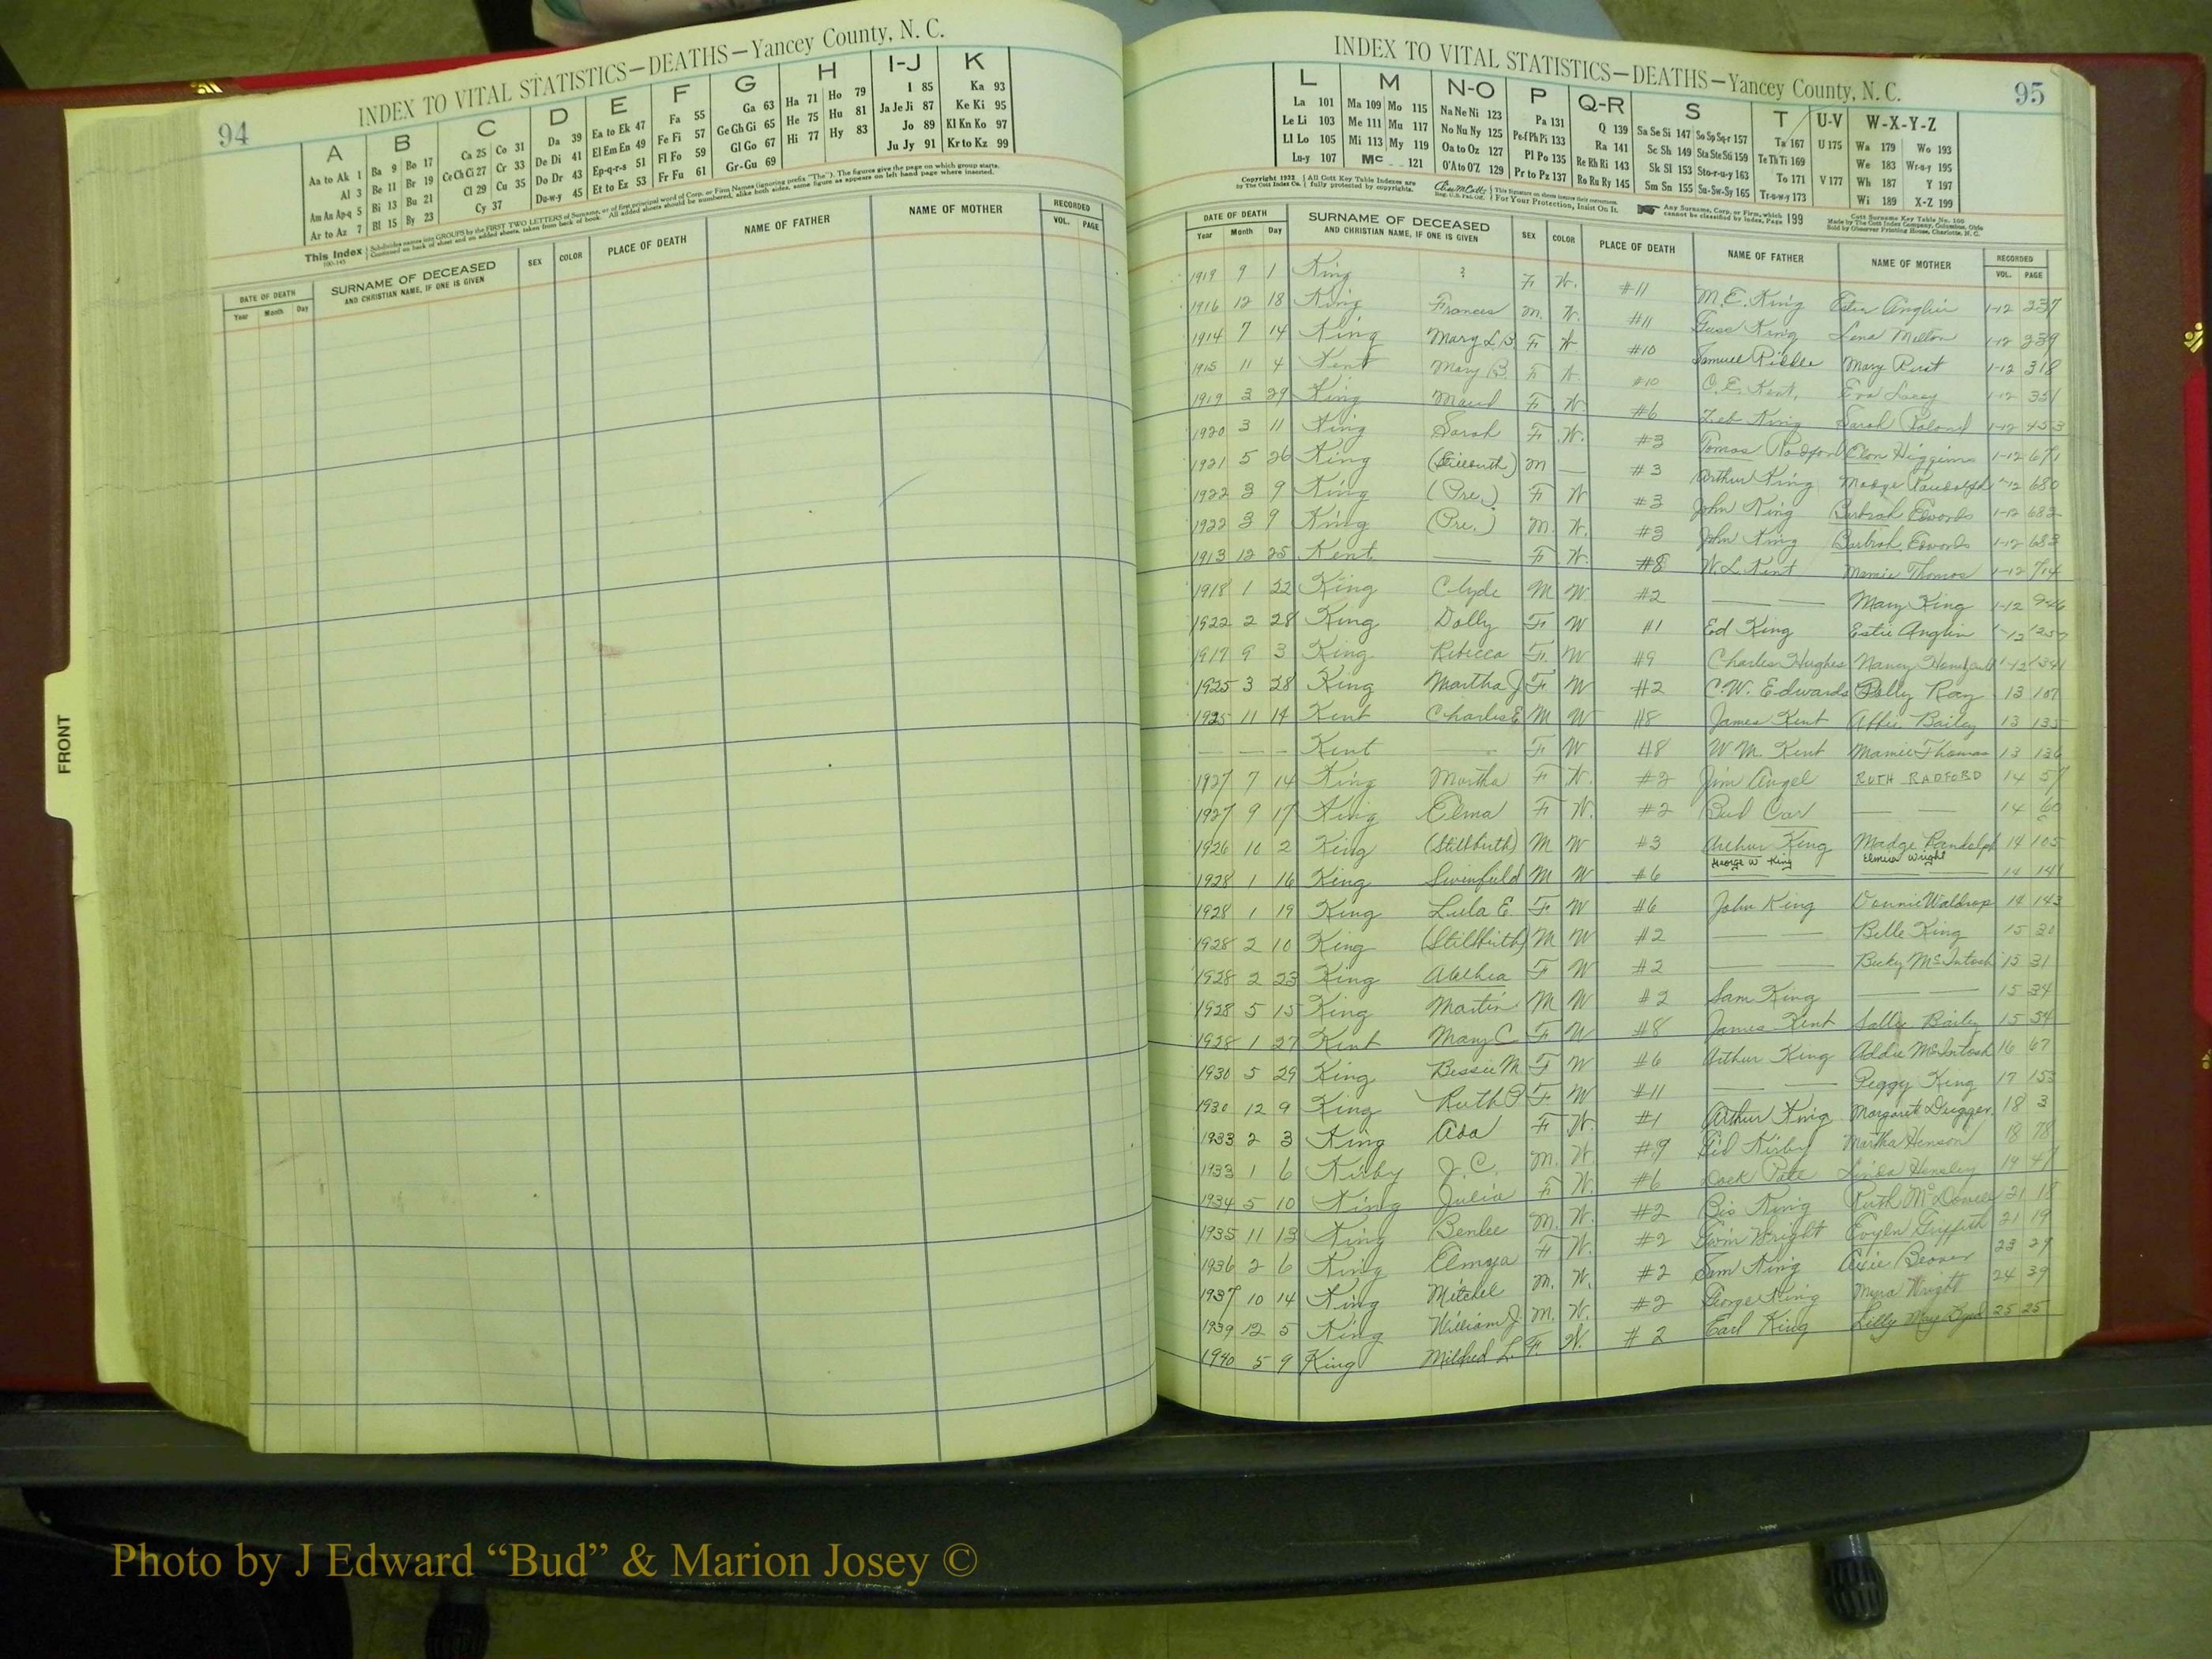 94
INDEX TO VITAL STATISTICS—DEATHS—Yancey County, N. C.
A B C D E F G H I-J K
Aa to Ak 1 Ba 9 Bo 17 Ca 25 Co 31 Da 39 Ea to Ek 47 Fa 55 Ga 63 Ha 71 Ho 79 I 85 Ka 93
Al 3 Be 11 Br 19 Ce Ch Ci 27 Cr 33 De Di 41 El Em En 49 Fe Fi 57 Ge Gh Gi 65 He 75 Hu 81 Ja Je Ji 87 Ke Ki 95
Am An Ap-q 5 Bi 13 Bu 21 Cl 29 Cu 35 Do Dr 43 Ep-q-r-s 51 Fl Fo 59 Gl Go 67 Hi 77 Hy 83 Jo 89 Kl Kn Ko 97
Ar to Az 7 Bl 15 By 23 Cy 37 Du-w-y 45 Et to Ez 53 Fr Fu 61 Gr-Gu 69 Ju Jy 91 Kr to Kz 99
This Index Subdivides names into GROUPS by the FIRST TWO LETTERS of Surname, or of first principal word of Corp. or Firm Names (ignoring prefix "The"). The figures give the page on which group starts.
Continued on back of sheet and on added sheets, taken from back of book. All added sheets should be numbered, alike both sides, same figure as appears on left hand page where inserted.
DATE OF DEATH SURNAME OF DECEASED SEX COLOR PLACE OF DEATH NAME OF FATHER NAME OF MOTHER RECORDED
Year Month Day AND CHRISTIAN NAME, IF ONE IS GIVEN VOL. PAGE
FRONT
INDEX TO VITAL STATISTICS—DEATHS—Yancey County, N. C.
95
L M N-O P Q-R S T U-V W-X-Y-Z
La 101 Ma 109 Mo 115 Na Ne Ni 123 Pa 131 Q 139 Sa Se Si 147 So Sp Sq-r 157 Ta 167 U 175 Wa 179 Wo 193
Le Li 103 Me 111 Mu 117 No Nu Ny 125 Pe-f Ph Pi 133 Ra 141 Sc Sh 149 Sta Ste Sti 159 Te Th Ti 169 We 183 Wr-u-y 195
Ll Lo 105 Mi 113 My 119 Oa to Oz 127 Pl Po 135 Re Rh Ri 143 Sk Sl 153 Sto-r-u-y 163 To 171 V 177 Wh 187 Y 197
Lu-y 107 Mc 121 O'A to O'Z 129 Pr to Pz 137 Ro Ru Ry 145 Sm Sn 155 Su-Sw-Sy 165 Tr-u-w-y 173 Wi 189 X-Z 199
Copyright 1922 All Cott Key Table Indexes are For Your Protection, Insist On It. Any Surname, Corp. or Firm, which cannot be classified by Index, Page 199
by The Cott Index Co. fully protected by copyrights. Made by The Cott Index Company, Columbus, Ohio
Sold by Observer Printing House, Charlotte, N. C.
DATE OF DEATH SURNAME OF DECEASED SEX COLOR PLACE OF DEATH NAME OF FATHER NAME OF MOTHER RECORDED
Year Month Day AND CHRISTIAN NAME, IF ONE IS GIVEN VOL. PAGE
1919 9 1 King ? F W. #11 M. E. King Ester Anglin 1-12 237
1916 12 18 King Frances M. W. #11 King Lena Melton 1-12 239
1914 7 14 King Mary L. B. F W #10 Samuel Riddle Mary 1-12 318
1915 11 4 Kent Mary B. F W #10 C. E. Kent, Eva 1-12 351
1919 3 29 King Maud F W. #6 Zeb King Sarah 1-12 453
1920 3 11 King Sarah F W. #3 Tomas Radford Higgins 1-12 671
1921 5 26 King (Stillbirth) M — #3 Arthur King Madge Randolph 1-12 680
1922 3 9 King (Pre.) F W #3 John King Barbrah Edwards 1-12 682
1922 3 9 King (Pre.) M. W. #3 John King Barbrah Edwards 1-12 683
1913 12 25 Kent — F W. #8 W. L. Kent Mamie Thomas 1-12 714
1918 1 22 King Clyde M W #2 — Mary King 1-12 946
1922 2 28 King Dolly F W #1 Ed King Estie Anglin 1-12 1257
1917 9 3 King Rebecca F. W #9 Charles Hughes Nancy 1-12 1341
1925 3 28 King Martha J F W #2 C. W. Edwards Polly Ray 13 107
1925 11 14 Kent Charles E M W #8 James Kent Bailey 13 135
— — — Kent — F W #8 W. M. Kent Mamie Thomas 13 136
1927 7 14 King Martha F W. #2 Jim Angel RUTH RADFORD 14 57
1927 9 17 King Elma F W. #2 Bud Car — 14 60
1926 10 2 King (Stillbirth) M W #3 Arthur King Madge Randolph 14 105
1928 1 16 King Swinfield M W #6 George W King Elmira Wright 14 141
1928 1 19 King Lula E. F W #6 John King Waldrop 14 143
1928 2 10 King (Stillbirth) M W #2 — Belle King 15 30
1928 2 23 King F W #2 — Becky McIntosh 15 31
1928 5 15 King Martin M W #2 Sam King — 15 34
1928 1 27 Kent Mary C F W #8 James Kent Sally Bailey 15 54
1930 5 29 King Bessie M F W #6 Arthur King Addie McIntosh 16 67
1930 12 9 King Ruth P F W #11 — Peggy King 17 153
1933 2 3 King Ada F W. #1 Arthur King Margaret Dugger 18 3
1933 1 6 Kirby J. C. M. W. #9 Kirby Martha Henson 18 78
1934 5 10 King Julia F W. #6 Pate Linda Hensley 19 47
1935 11 13 King Benlee M. W. #2 King Ruth McDowell 21 18
1936 2 6 King Elmyra F W. #2 Wright Griffith 21 19
1937 10 14 King Mitchel M. W. #2 Sam King 23 29
1939 12 5 King William J M. W. #2 George King Myra Wright 24 39
1940 5 9 King Mildred L. F. W. #2 Earl King Lilly May Byrd 25 25
Photo by J Edward “Bud” & Marion Josey ©